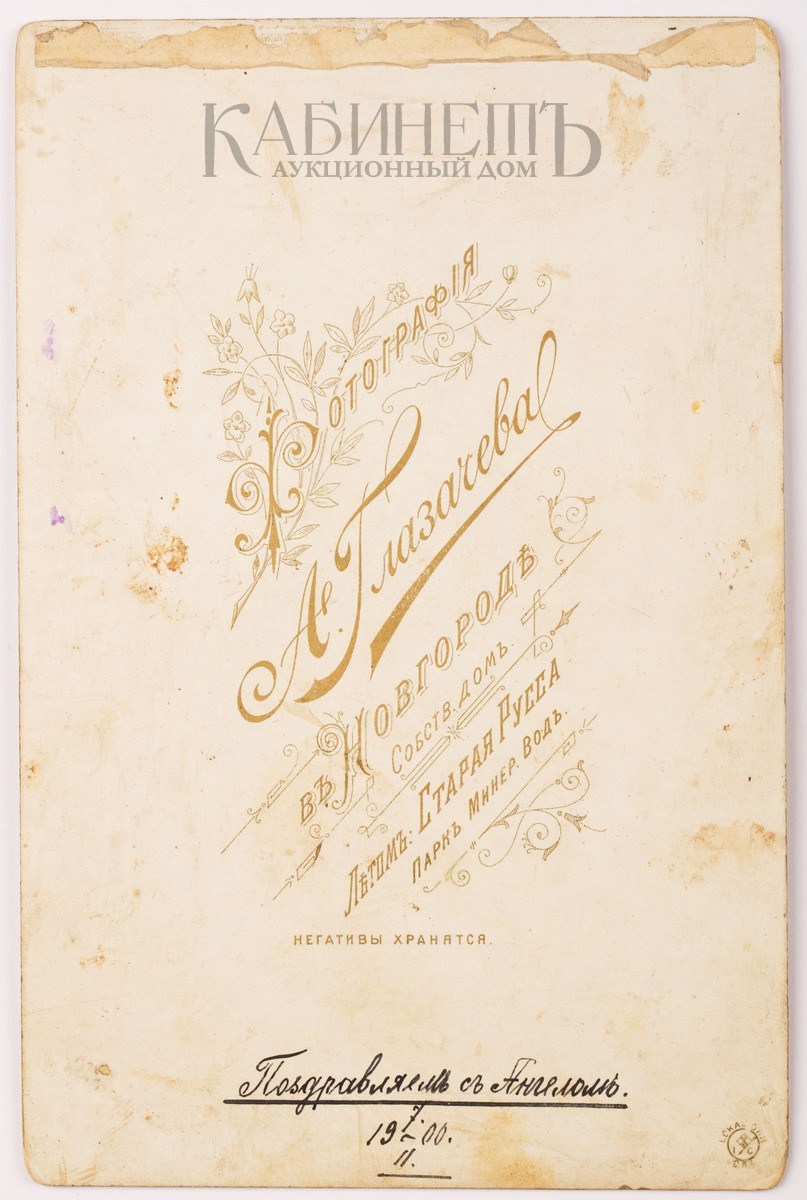 КАБИНЕТЪ
АУКЦИОННЫЙ ДОМ
ФОТОГРАФІЯ
А. Глазачева
ВЪ НОВГОРОДѢ
СОБСТВ. ДОМЪ.
ЛѢТОМЪ: СТАРАЯ РУССА
ПАРКЪ МИНЕР. ВОДЪ.
НЕГАТИВЫ ХРАНЯТСЯ.
Поздравляемъ съ Ангеломъ.
7
19–00.
II.